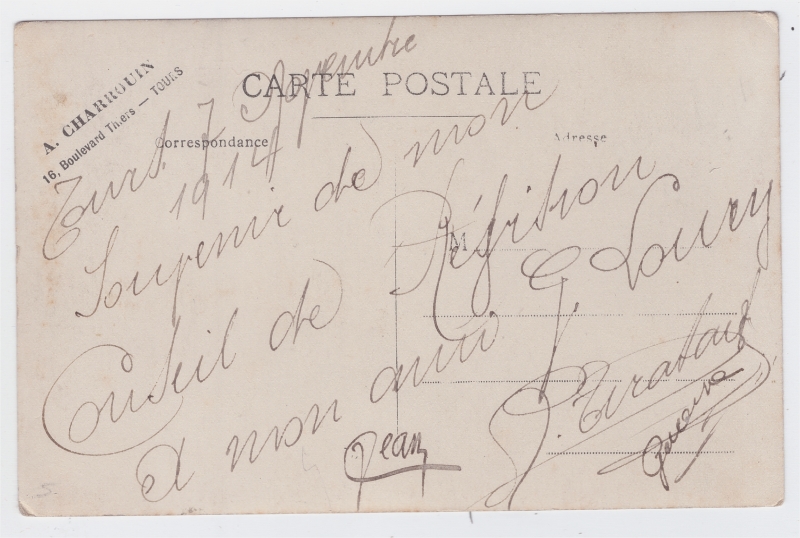 A. CHARROUIN
16, Boulevard Thiers — TOURS
CARTE POSTALE
Correspondance
Adresse
Tours 7 Novembre
1914
Souvenir de mon
Conseil de Révision
A mon ami
Loury
M
Jean